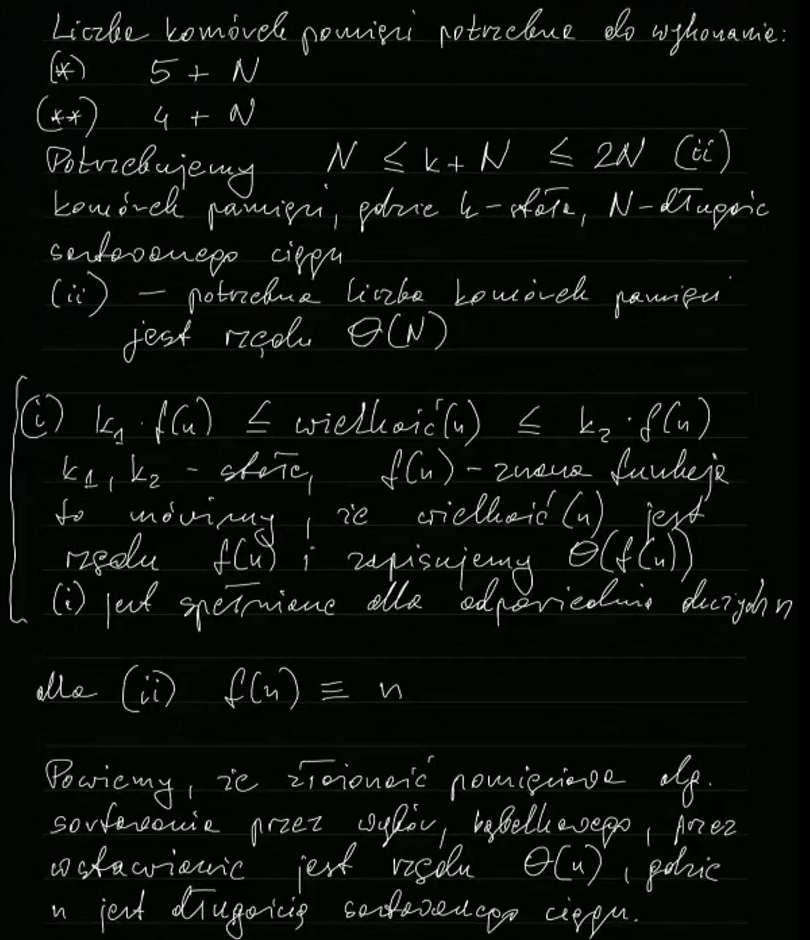 Liczba komórek pamięci potrzebna do wykonania:
(*) 5 + N
(**) 4 + N
Potrzebujemy N ≤ k + N ≤ 2N (ii)
komórek pamięci, gdzie k - stała, N - długość
sortowanego ciągu
(ii) — potrzebna liczba komórek pamięci
jest rzędu Θ(N)
(i) k₁ · f(n) ≤ wielkość(n) ≤ k₂ · f(n)
k₁, k₂ - stałe, f(n) - znana funkcja
to mówimy, że wielkość(n) jest
rzędu f(n) i zapisujemy Θ(f(n))
(i) jest spełniane dla odpowiednio dużych n
dla (ii) f(n) ≡ n
Powiemy, że złożoność pamięciowa alg.
sortowania przez wybór, bąbelkowego, przez
wstawianie jest rzędu Θ(n), gdzie
n jest długością sortowanego ciągu.